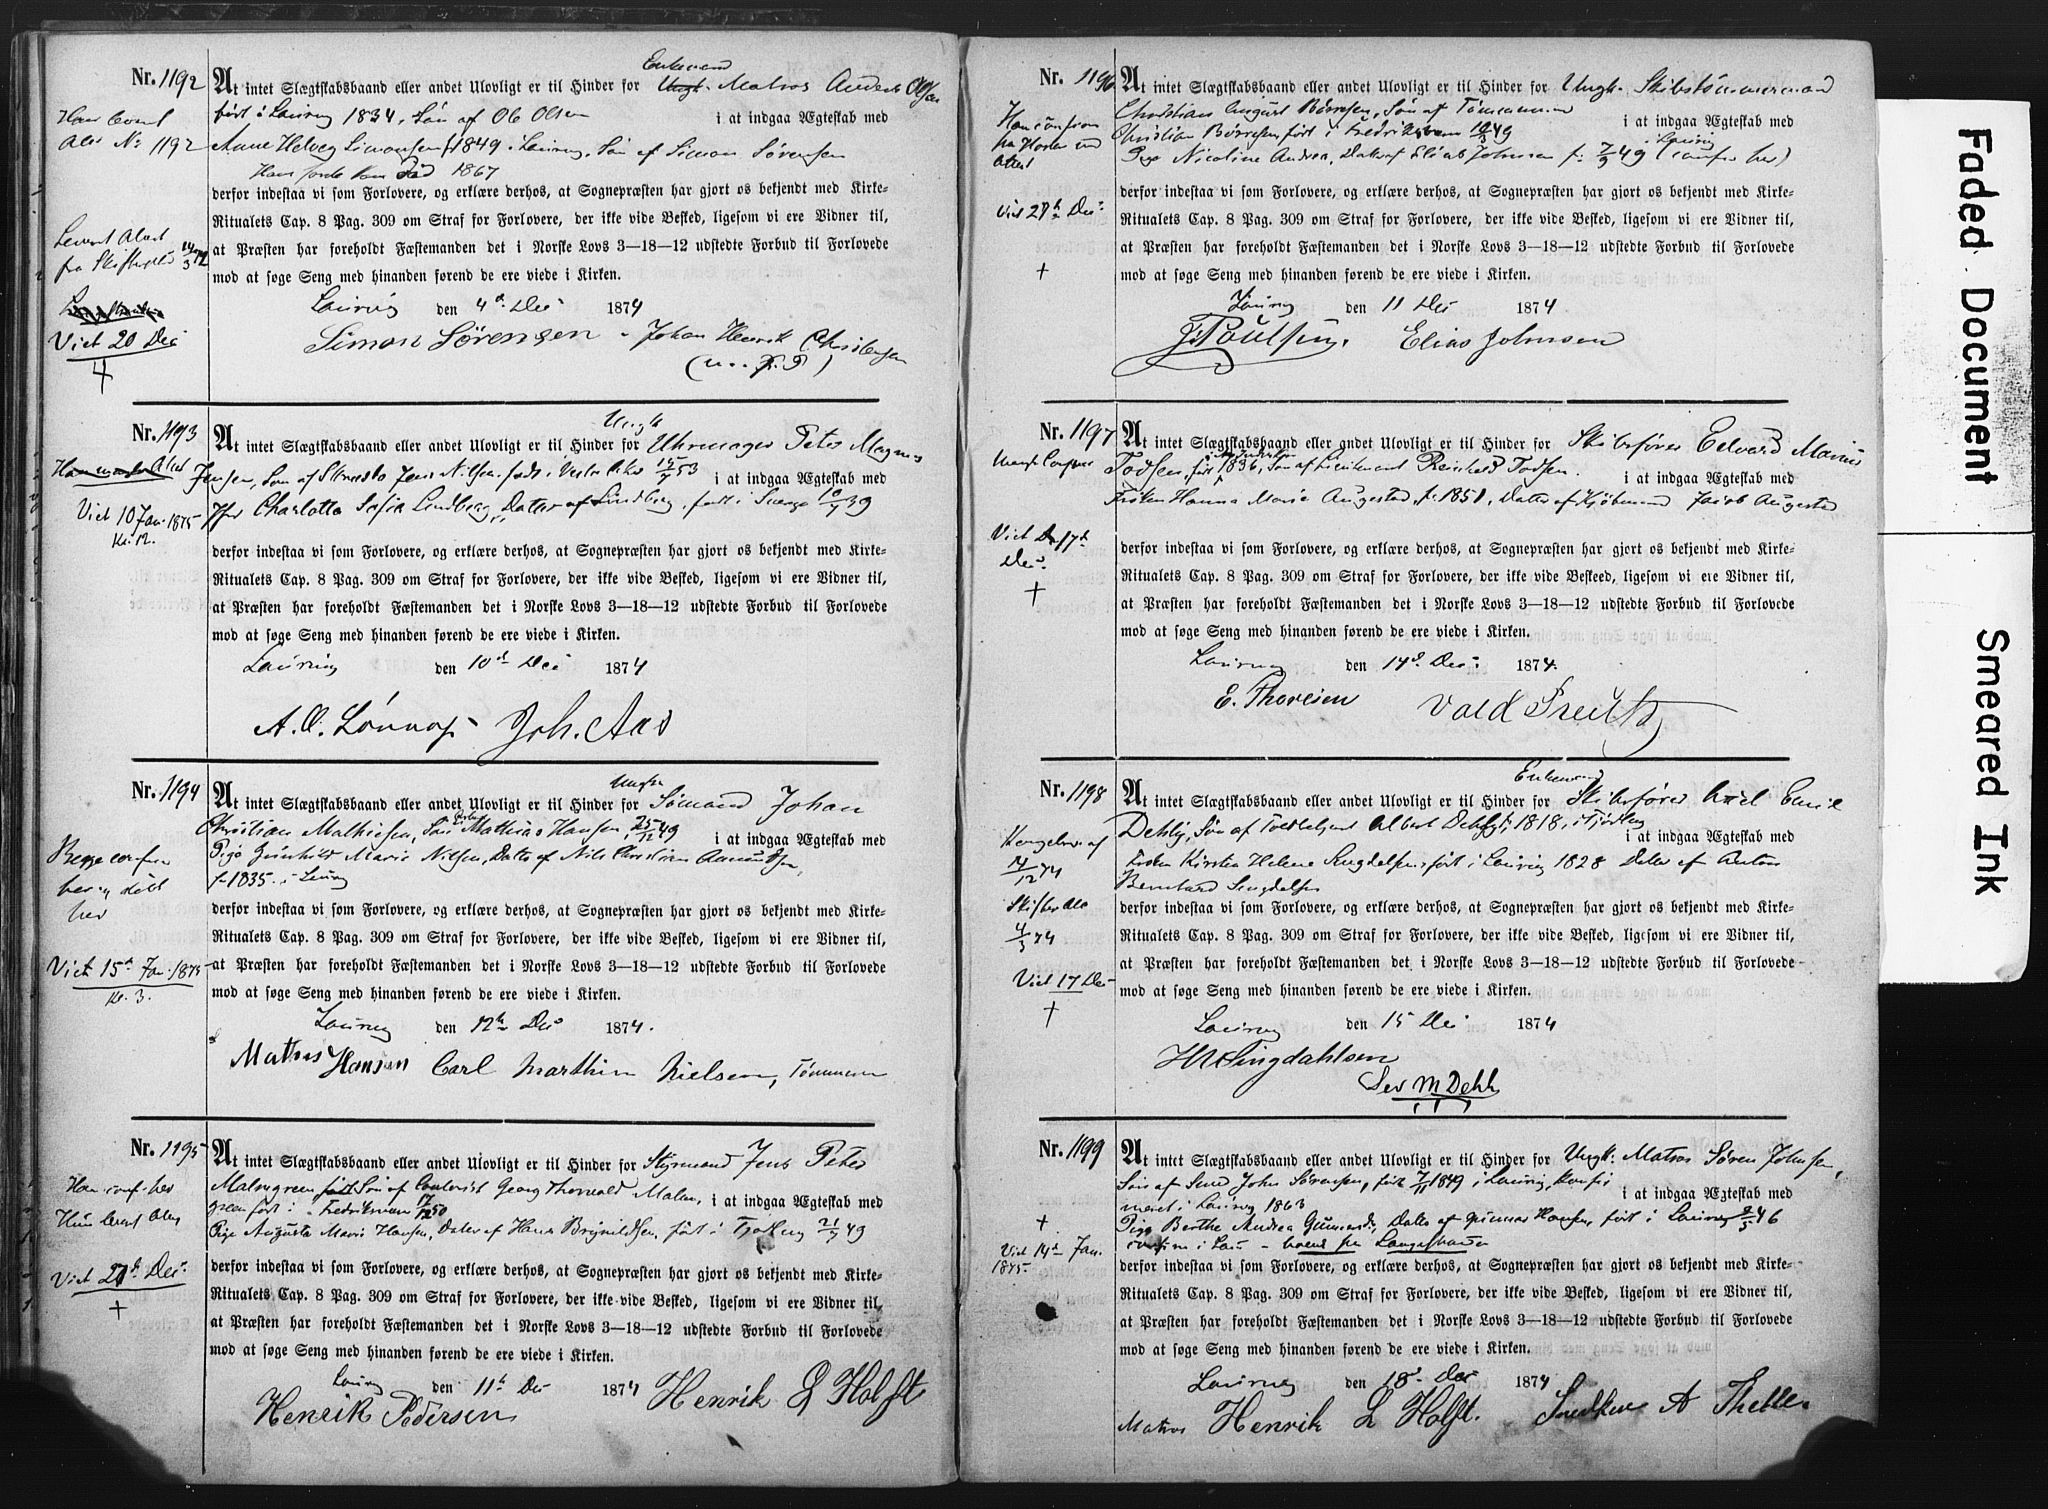 Nr. 1192
At intet Slægtskabsbaand eller andet Ulovligt er til Hinder for Enkemand Ungk. Matros Anders Olsen
født i Laurvig 1834, Søn af Ole Olsen i at indgaa Ægteskab med
Anne Helvig Simonsen f 1849 i Laurvig, Søn af Simon Sørensen
1867
derfor indestaa vi som Forlovere, og erklære derhos, at Sognepræsten har gjort os bekjendt med Kirke-
Ritualets Cap. 8 Pag. 309 om Straf for Forlovere, der ikke vide Besked, ligesom vi ere Vidner til,
at Præsten har foreholdt Fæstemanden det i Norske Lovs 3—18—12 udstedte Forbud til Forlovede
mod at søge Seng med hinanden førend de ere viede i Kirken.
Laurvig den 4d Dec 1874
Simon Sørensen Johan Henrik Christensen
(m. p. P)
Attest No 1192
Levert Attest
fra Skifteret 14/3 72
Viet 20 Dec
Nr. 1193
At intet Slægtskabsbaand eller andet Ulovligt er til Hinder for Ungk Uhrmager Peter Magnus
Jensen, Søn af Jens Nilsen, født i Vestre Aker 53 i at indgaa Ægteskab med
Jfr Charlotta Sofia Lindberg, Datter af Lindberg, født i Sverge 39
derfor indestaa vi som Forlovere, og erklære derhos, at Sognepræsten har gjort os bekjendt med Kirke-
Ritualets Cap. 8 Pag. 309 om Straf for Forlovere, der ikke vide Besked, ligesom vi ere Vidner til,
at Præsten har foreholdt Fæstemanden det i Norske Lovs 3—18—12 udstedte Forbud til Forlovede
mod at søge Seng med hinanden førend de ere viede i Kirken.
Laurvig den 10d Dec 1874
Joh. Aas
Viet 10 Jan 1875
Kl. 12.
Nr. 1194
At intet Slægtskabsbaand eller andet Ulovligt er til Hinder for Sømand Johan
Christian Mathisen, Søn Mathias Hansen, 25/12 49 i at indgaa Ægteskab med
Pige Gunhild Marie Nilsen, Datter af Nils Christian
f. 1835 i Laurvig
derfor indestaa vi som Forlovere, og erklære derhos, at Sognepræsten har gjort os bekjendt med Kirke-
Ritualets Cap. 8 Pag. 309 om Straf for Forlovere, der ikke vide Besked, ligesom vi ere Vidner til,
at Præsten har foreholdt Fæstemanden det i Norske Lovs 3—18—12 udstedte Forbud til Forlovede
mod at søge Seng med hinanden førend de ere viede i Kirken.
Laurvig den 12h Dec 1874.
Matias Hansen Carl Marthin Nielsen, Tømmerm
Begge conf
her og døbt
her
Viet 15d Jan. 1875
Kl. 3.
Nr. 1195
At intet Slægtskabsbaand eller andet Ulovligt er til Hinder for Styrmand Jens Peter
Malmgreen født Søn af Georg Thorvald Malm- i at indgaa Ægteskab med
green født i Fredriksværn 17/12 50
Pige Augusta Marie Hansen, Datter af Hans Brynildsen, født i Tjølling 21/7 49
derfor indestaa vi som Forlovere, og erklære derhos, at Sognepræsten har gjort os bekjendt med Kirke-
Ritualets Cap. 8 Pag. 309 om Straf for Forlovere, der ikke vide Besked, ligesom vi ere Vidner til,
at Præsten har foreholdt Fæstemanden det i Norske Lovs 3—18—12 udstedte Forbud til Forlovede
mod at søge Seng med hinanden førend de ere viede i Kirken.
Laurvig den 11h Dec 1874
Henrik Pedersen Henrik L Holst
Han conf. her
Hun levert Attest
Viet 27d Dec.
Nr. 1196
At intet Slægtskabsbaand eller andet Ulovligt er til Hinder for Ungk. Skibstømmermand
Christian August Børresen, Søn af Tømmermand i at indgaa Ægteskab med
Christian Børresen, født i Fredriksværn 49
Pige Nicoline Andrea, Datter af Elias Johnsen f. 7/9 49 i Laurvig (conf her)
derfor indestaa vi som Forlovere, og erklære derhos, at Sognepræsten har gjort os bekjendt med Kirke-
Ritualets Cap. 8 Pag. 309 om Straf for Forlovere, der ikke vide Besked, ligesom vi ere Vidner til,
at Præsten har foreholdt Fæstemanden det i Norske Lovs 3—18—12 udstedte Forbud til Forlovede
mod at søge Seng med hinanden førend de ere viede i Kirken.
Laurvig den 11 Dec 1874
J Poulsen. Elias Johnsen
Viet 27h Dec.
Nr. 1197
At intet Slægtskabsbaand eller andet Ulovligt er til Hinder for Skibsfører Edvard Marius
Todsen, født 1836, Søn af Lieutenant Reinhold Todsen. i at indgaa Ægteskab med
Frøken Hanna Marie Augestad, f. 1851, Datter af Kjøbmand Jacob Augestad
derfor indestaa vi som Forlovere, og erklære derhos, at Sognepræsten har gjort os bekjendt med Kirke-
Ritualets Cap. 8 Pag. 309 om Straf for Forlovere, der ikke vide Beskeed, ligesom vi ere Vidner til,
at Præsten har foreholdt Fæstemanden det i Norske Lovs 3—18—12 udstedte Forbud til Forlovede
mod at søge Seng med hinanden førend de ere viede i Kirken.
Laurvig den 14d. Dec. 1874.
E. Thoresen
Viet D 17d
Dec.
Nr. 1198
At intet Slægtskabsbaand eller andet Ulovligt er til Hinder for Enkemand Skibsfører Axel Emil
Dehli, Søn af Albert Dehli, f. 1818, i Tjølling i at indgaa Ægteskab med
Frøken Kirstin Helene Singdahlsen, født i Laurvig 1828 Datter af Anton
Bernhard Singdahlsen
derfor indestaa vi som Forlovere, og erklære derhos, at Sognepræsten har gjort os bekjendt med Kirke-
Ritualets Cap. 8 Pag. 309 om Straf for Forlovere, der ikke vide Besked, ligesom vi ere Vidner til,
at Præsten har foreholdt Fæstemanden det i Norske Lovs 3—18—12 udstedte Forbud til Forlovede
mod at søge Seng med hinanden førend de ere viede i Kirken.
Laurvig den 15 Dec 1874
Singdahlsen
Kongebrev af
14/12 74
Skifteatt
4/3 74
Viet 17 Dec
Nr. 1199
At intet Slægtskabsbaand eller andet Ulovligt er til Hinder for Ungk. Matros Søren Johnsen,
Søn af John Sørensen, født 7/11 1849 i Laurvig, konfir-
meret i Laurvig 1863 i at indgaa Ægteskab med
Pige Berthe Andrea Gunnersd, Datter af Gunner Hansen, født i Laurvig 2/5 46
confirm i Laur - boend paa Langestrand
derfor indestaa vi som Forlovere, og erklære derhos, at Sognepræsten har gjort os bekjendt med Kirke-
Ritualets Cap. 8 Pag. 309 om Straf for Forlovere, der ikke vide Besked, ligesom vi ere Vidner til,
at Præsten har foreholdt Fæstemanden det i Norske Lovs 3—18—12 udstedte Forbud til Forlovede
mod at søge Seng med hinanden førend de ere viede i Kirken.
Laurvig den 18d. Dec 1874
Matros Henrik L Holst. Snedker A Thelle.
Viet 14d Jan.
1875
Faded Document
Smeared Ink